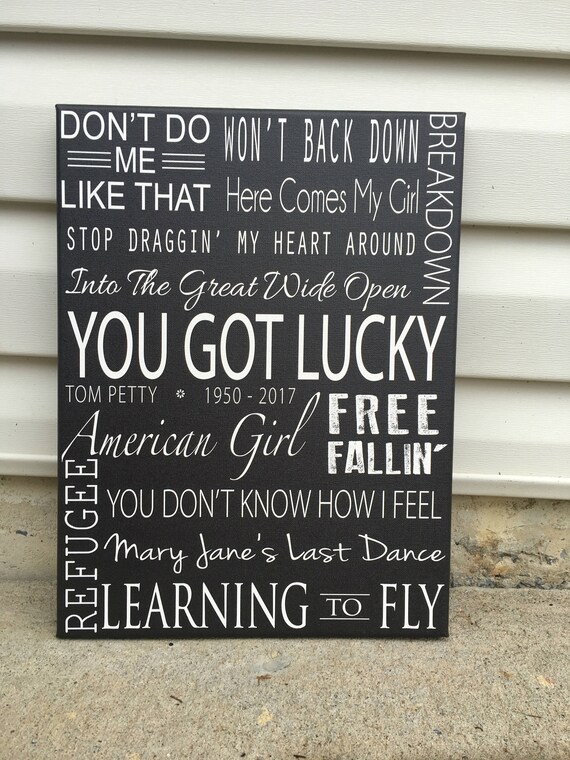 DON'T DO
ME
LIKE THAT
WON'T BACK DOWN
Here Comes My Girl
BREAKDOWN
STOP DRAGGIN' MY HEART AROUND
Into The Great Wide Open
YOU GOT LUCKY
TOM PETTY * 1950 - 2017
American Girl
FREE
FALLIN'
REFUGEE
YOU DON'T KNOW HOW I FEEL
Mary Jane's Last Dance
LEARNING TO FLY